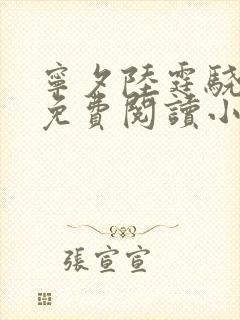 寧夕陸霆驍
免費閱讀小
張宣宣